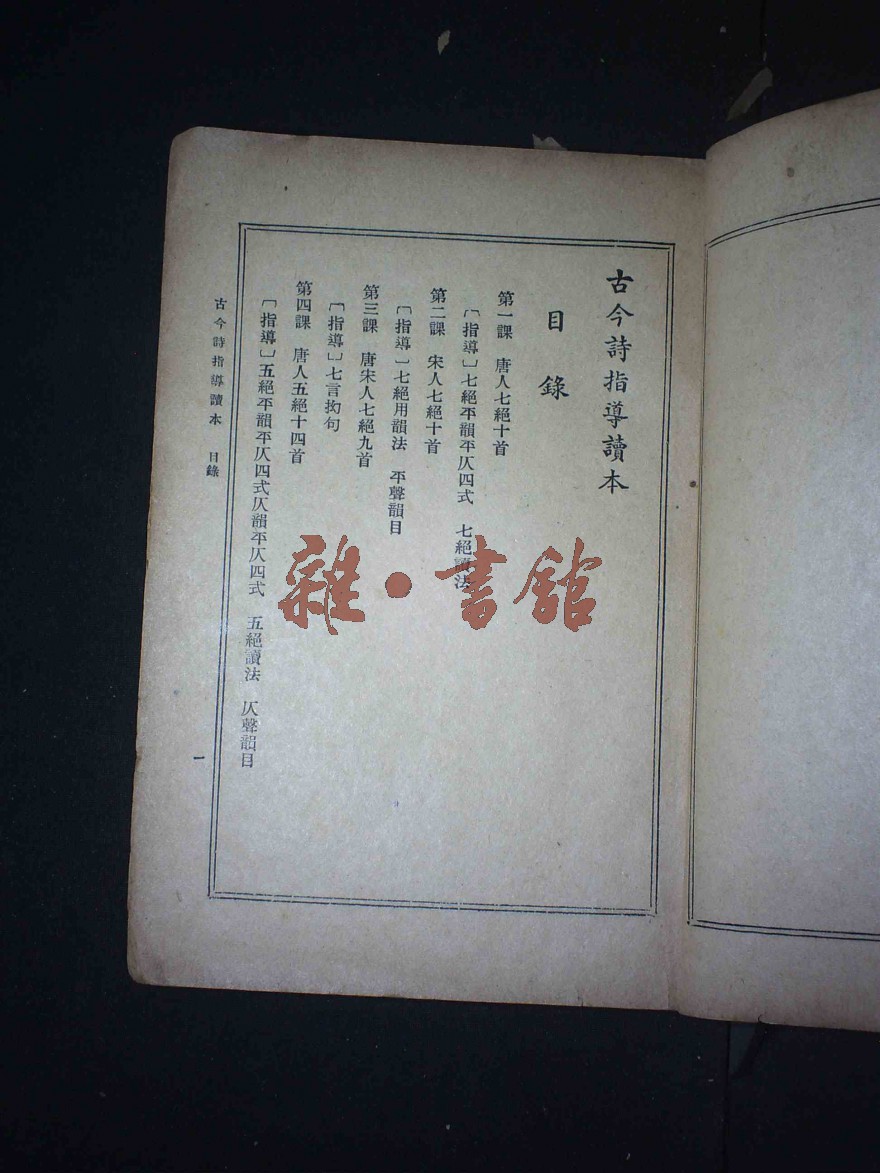 古今詩指導讀本
目錄
第一課 唐人七絕十首
〔指導〕七絕平韻平仄四式 七絕讀法
第二課 宋人七絕十首
〔指導〕七絕用韻法 平聲韻目
第三課 唐宋人七絕九首
〔指導〕七言拗句
第四課 唐人五絕十四首
〔指導〕五絕平韻平仄四式仄韻平仄四式 五絕讀法 仄聲韻目
古今詩指導讀本 目錄
一
雜·書館